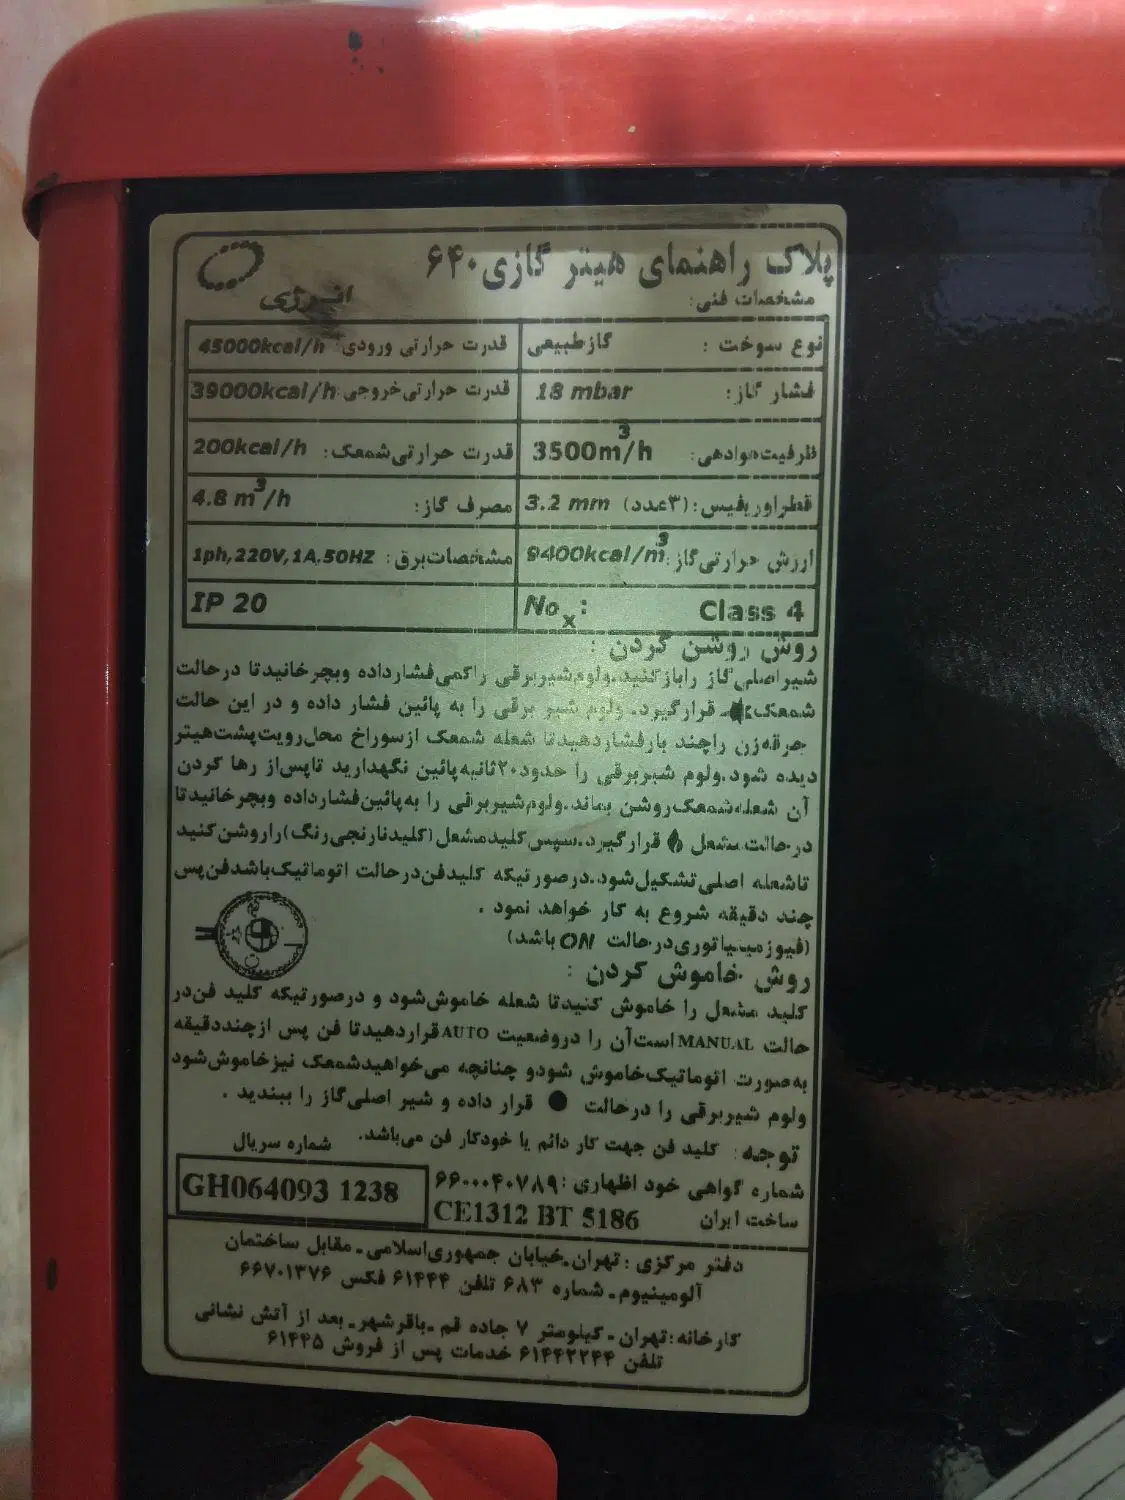 پلاک راهنمای هیتر گازی ۶۴۰
انرژی
مشخصات فنی:
نوع سوخت : گازطبیعی قدرت حرارتی ورودی: 45000kcal/h
فشار گاز: 18 mbar قدرت حرارتی خروجی: 39000kcal/h
ظرفیت هوادهی: 3500m³/h قدرت حرارتی شمعک: 200kcal/h
قطر اوریفیس: (۳عدد) 3.2 mm مصرف گاز: 4.8 m³/h
ارزش حرارتی گاز: 9400kcal/m³ مشخصات برق: 1ph,220V,1A,50HZ
NOx: Class 4 IP 20
روش روشن کردن :
شیر اصلی گاز را باز کنید.ولوم شیربرقی را کمی فشار داده وبچرخانید تا درحالت
شمعک قرار گیرد. ولوم شیر برقی را به پائین فشار داده و در این حالت
جرقه زن را چند بار فشار دهید تا شعله شمعک از سوراخ محل رویت پشت هیتر
دیده شود.ولوم شیربرقی را حدود ۲۰ثانیه پائین نگهدارید تا پس از رها کردن
آن شعله شمعک روشن بماند.ولوم شیربرقی را به پائین فشار داده وبچرخانید تا
درحالت مشعل قرار گیرد.سپس کلید مشعل (کلید نارنجی رنگ) را روشن کنید
تا شعله اصلی تشکیل شود.درصورتیکه کلید فن درحالت اتوماتیک باشد فن پس
چند دقیقه شروع به کار خواهد نمود .
(فیوز مینیاتوری درحالت ON باشد)
روش خاموش کردن :
کلید مشعل را خاموش کنید تا شعله خاموش شود و درصورتیکه کلید فن در
حالت MANUAL است آن را در وضعیت AUTO قرار دهید تا فن پس از چند دقیقه
به صورت اتوماتیک خاموش شود و چنانچه می خواهید شمعک نیز خاموش شود
ولوم شیربرقی را درحالت ● قرار داده و شیر اصلی گاز را ببندید .
توجه : کلید فن جهت کار دائم یا خودکار فن می باشد.
شماره سریال
GH064093 1238
شماره گواهی خود اظهاری :۶۶۰۰۰۴۰۷۸۹
ساخت ایران CE1312 BT 5186
دفتر مرکزی : تهران.خیابان جمهوری اسلامی ـ مقابل ساختمان
آلومینیوم ـ شماره ۶۸۳ تلفن ۶۱۴۴۴ فکس ۶۶۷۰۱۳۷۶
کارخانه :تهران ـ کیلومتر ۷ جاده قم ـ باقرشهر ـ بعد از آتش نشانی
تلفن ۶۱۴۴۲۲۴۴ خدمات پس از فروش ۶۱۴۴۵